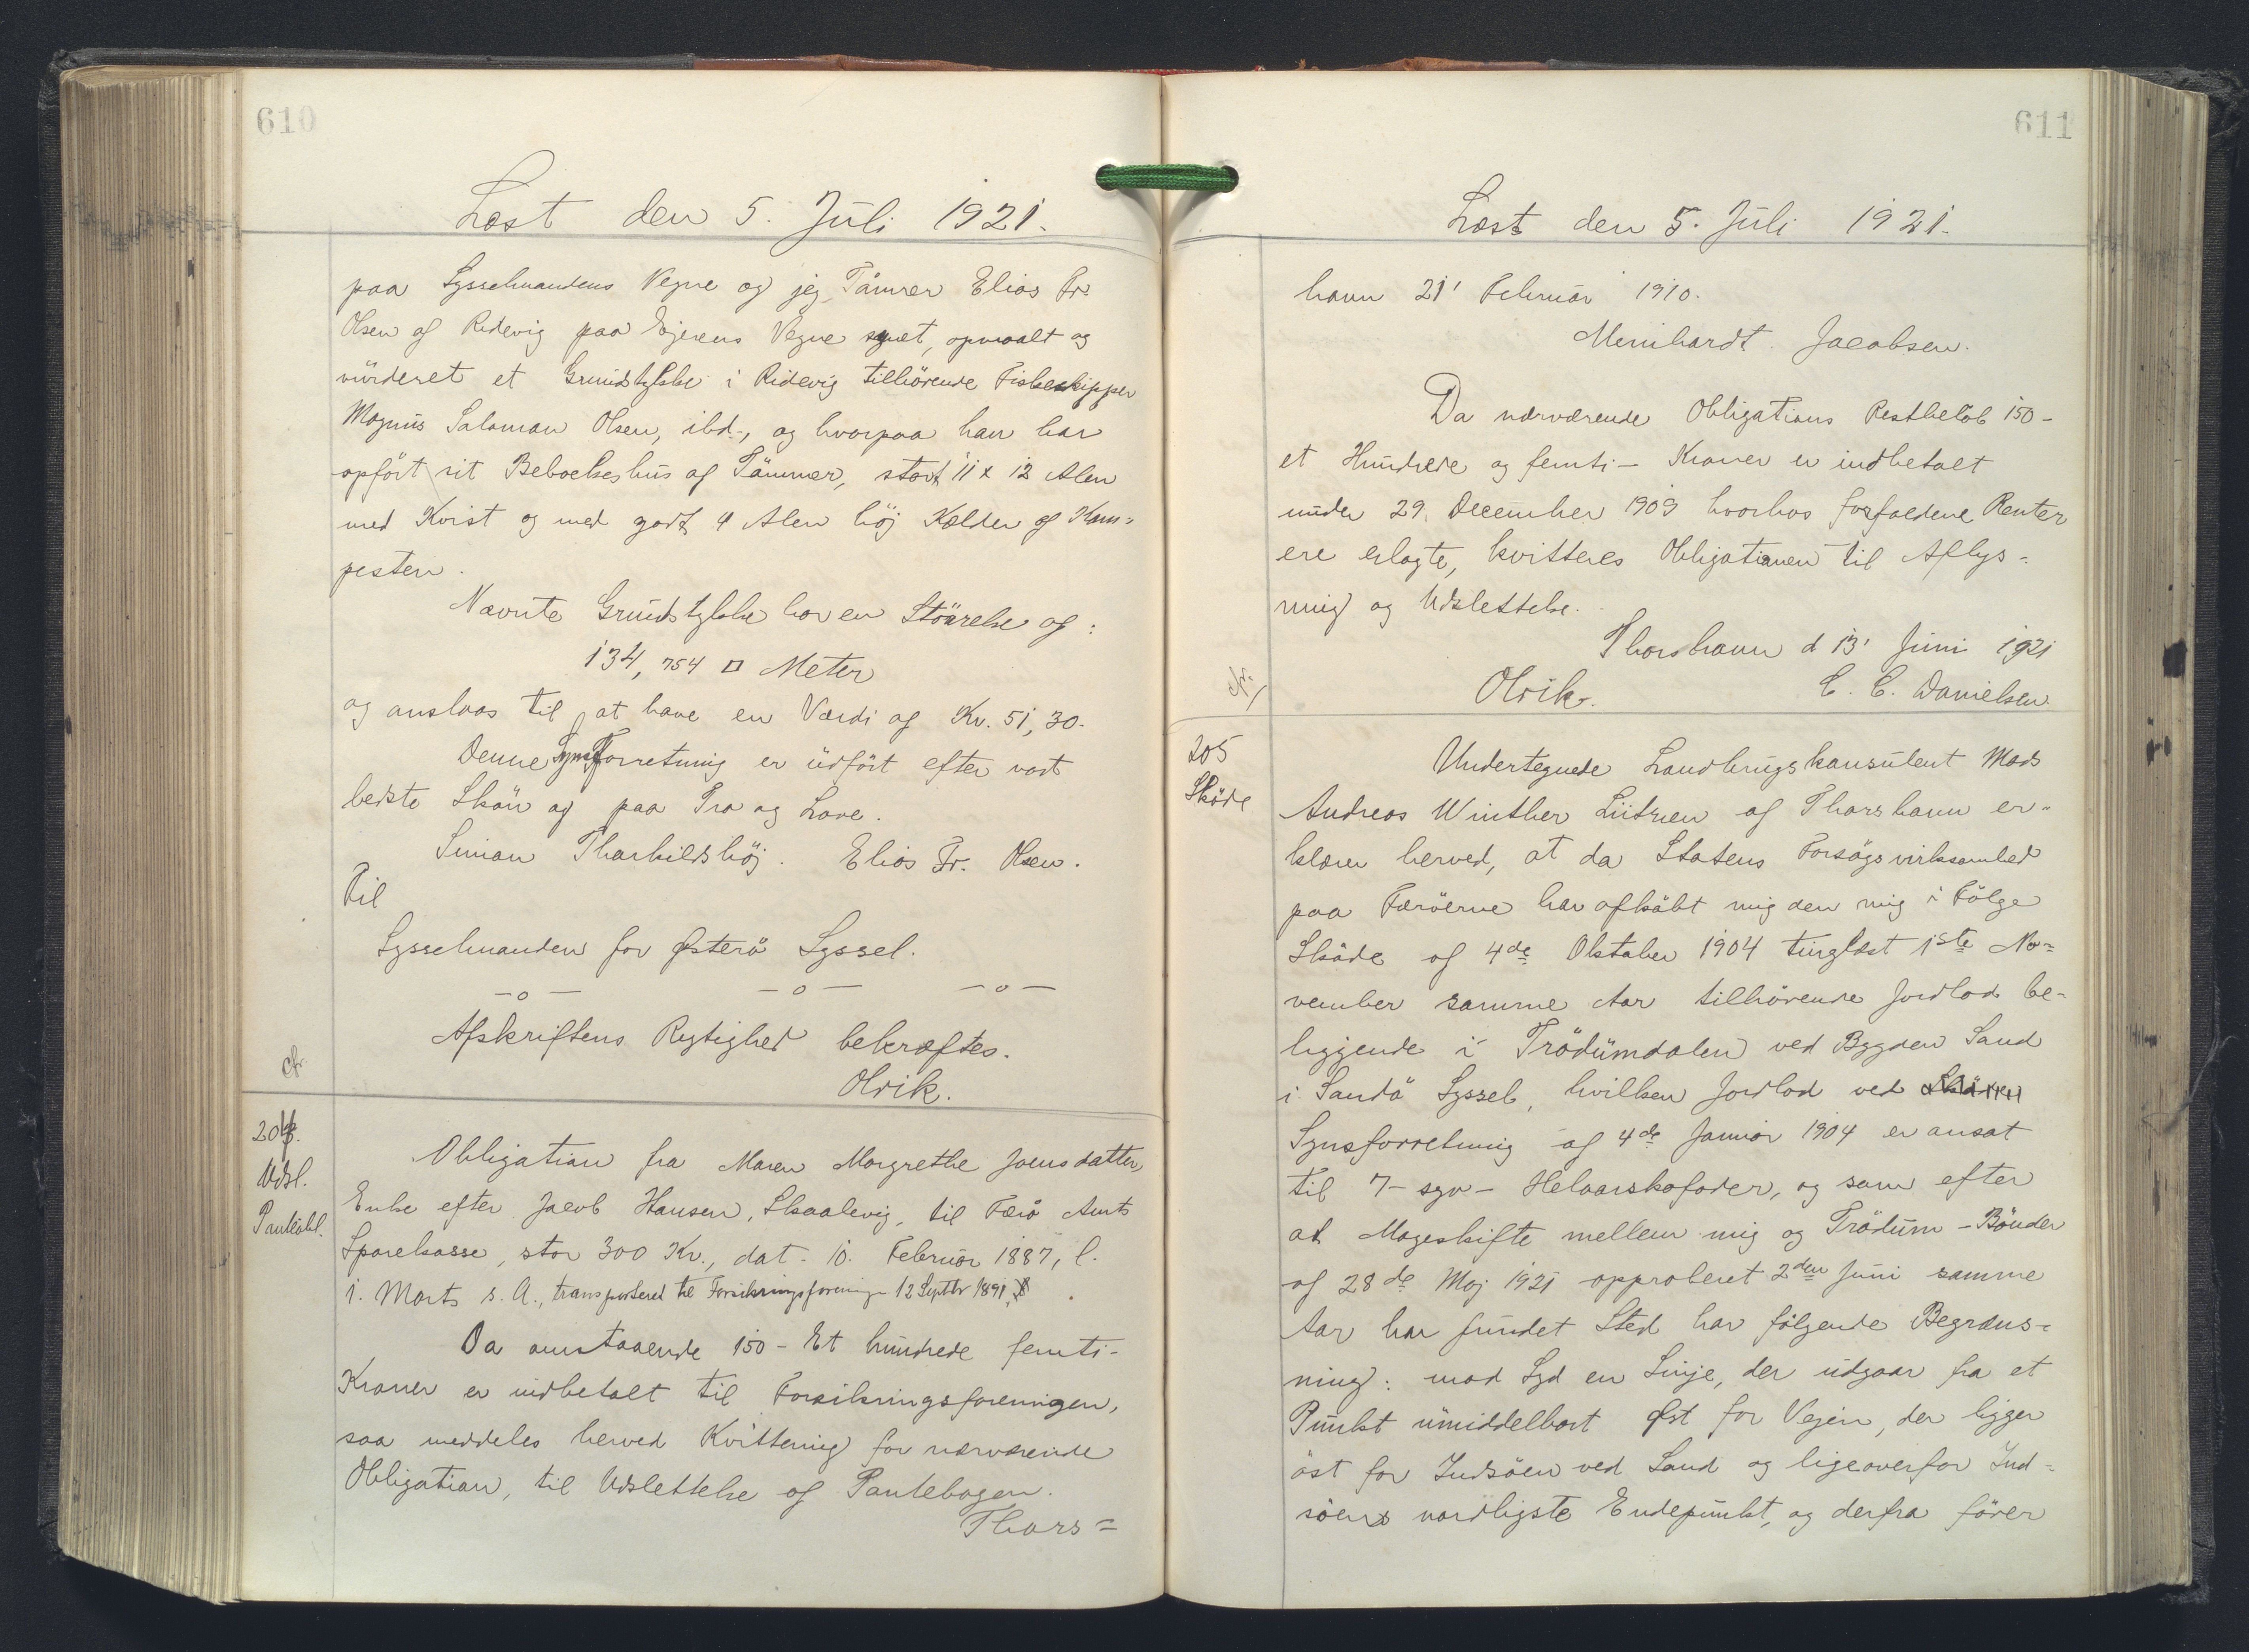 610
Læst den 5. Juli 1921.
paa Sysselmandens Vegne og jeg Tömrer Elias Fr.
Olsen af Ridevig paa Ejerens Vegne synet, opmaalt og
vürderet et Grundstykke i Ridevig tilhörende Fiskeskipper
Magnus Salamon Olsen, ibd., og hvorpaa han har
opfört sit Beboelseshus af Tömmer, stort 11 x 12 Alen
med Kvist og med godt 4 Alen höj Kælder af Kam-
pesten.
Nævnte Grundstykke har en Störrelse af:
134,754 □ Meter
og anslaas til at have en Værdi af Kr. 51,30.
Denne Synsforretning er udfört efter vort
bedste Skön og paa Tro og Love.
Simon Thorkildshöj. Elias Fr. Olsen.
Til
Sysselmanden for Østerö Syssel.
—o— —o— —o—
Afskriftens Rigtighed bekræftes.
Olrik.
cfr
204.
Udsl.
Panteobl.
Obligation fra Maren Margrethe Joensdatter,
Enke efter Jacob Hansen, Skaalevig, til Færö Amts
Sparekasse, stor 300 Kr., dat. 10. Februar 1887, l.
1. Marts s. A., transporteret til Forsikringsforeningen 12 Septbr 1891.
Da omstaaende 150 - Et hundrede femti-
Kroner er indbetalt til Forsikringsforeningen,
saa meddeles herved Kvittering for nærværende
Obligation, til Udslettelse af Pantebogen.
Thors=
611
Læst den 5. Juli 1921.
havn 21' Februar 1910.
Meinhardt. Jacobsen.
Da nærværende Obligations Restbelöb 150-
et Hundrede og femti - Kroner er indbetalt
under 29. December 1909 hvorhos forfaldene Renter
ere erlagte, kvitteres Obligationen til Aflys-
ning og Udslettelse.
Thorshavn d 13' Juni 1921
Olrik. C. C. Danielsen.
cfr.
205
Sköde
Undertegnede Landbrugskonsulent Mads
Andreas Winther Lützen af Thorshavn er-
klærer herved, at da Statens Forsögsvirksomhed
paa Færöerne har afköbt mig den mig i Fölge
Sköde af 4de Oktober 1904 tinglæst 1ste No-
vember samme Aar tilhörende Jordlod be-
liggende i Trödumdalen ved Bygden Sand
i Sandö Syssel, hvilken Jordlod ved
Synsforretning af 4de Januar 1904 er ansat
til 7 - syv - Helaarskofoder, og som efter
at Mageskifte mellem mig og Trödum - Bönder
af 28de Maj 1921 approberet 2den Juni samme
Aar har fundet Sted har fölgende Begræns-
ning: mod Syd en Linje, der udgaar fra et
Punkt umiddelbart Øst for Vejen, der ligger
öst for Indsöen ved Sand og ligeoverfor Ind-
söens nordligste Endepunkt, og derfra förer